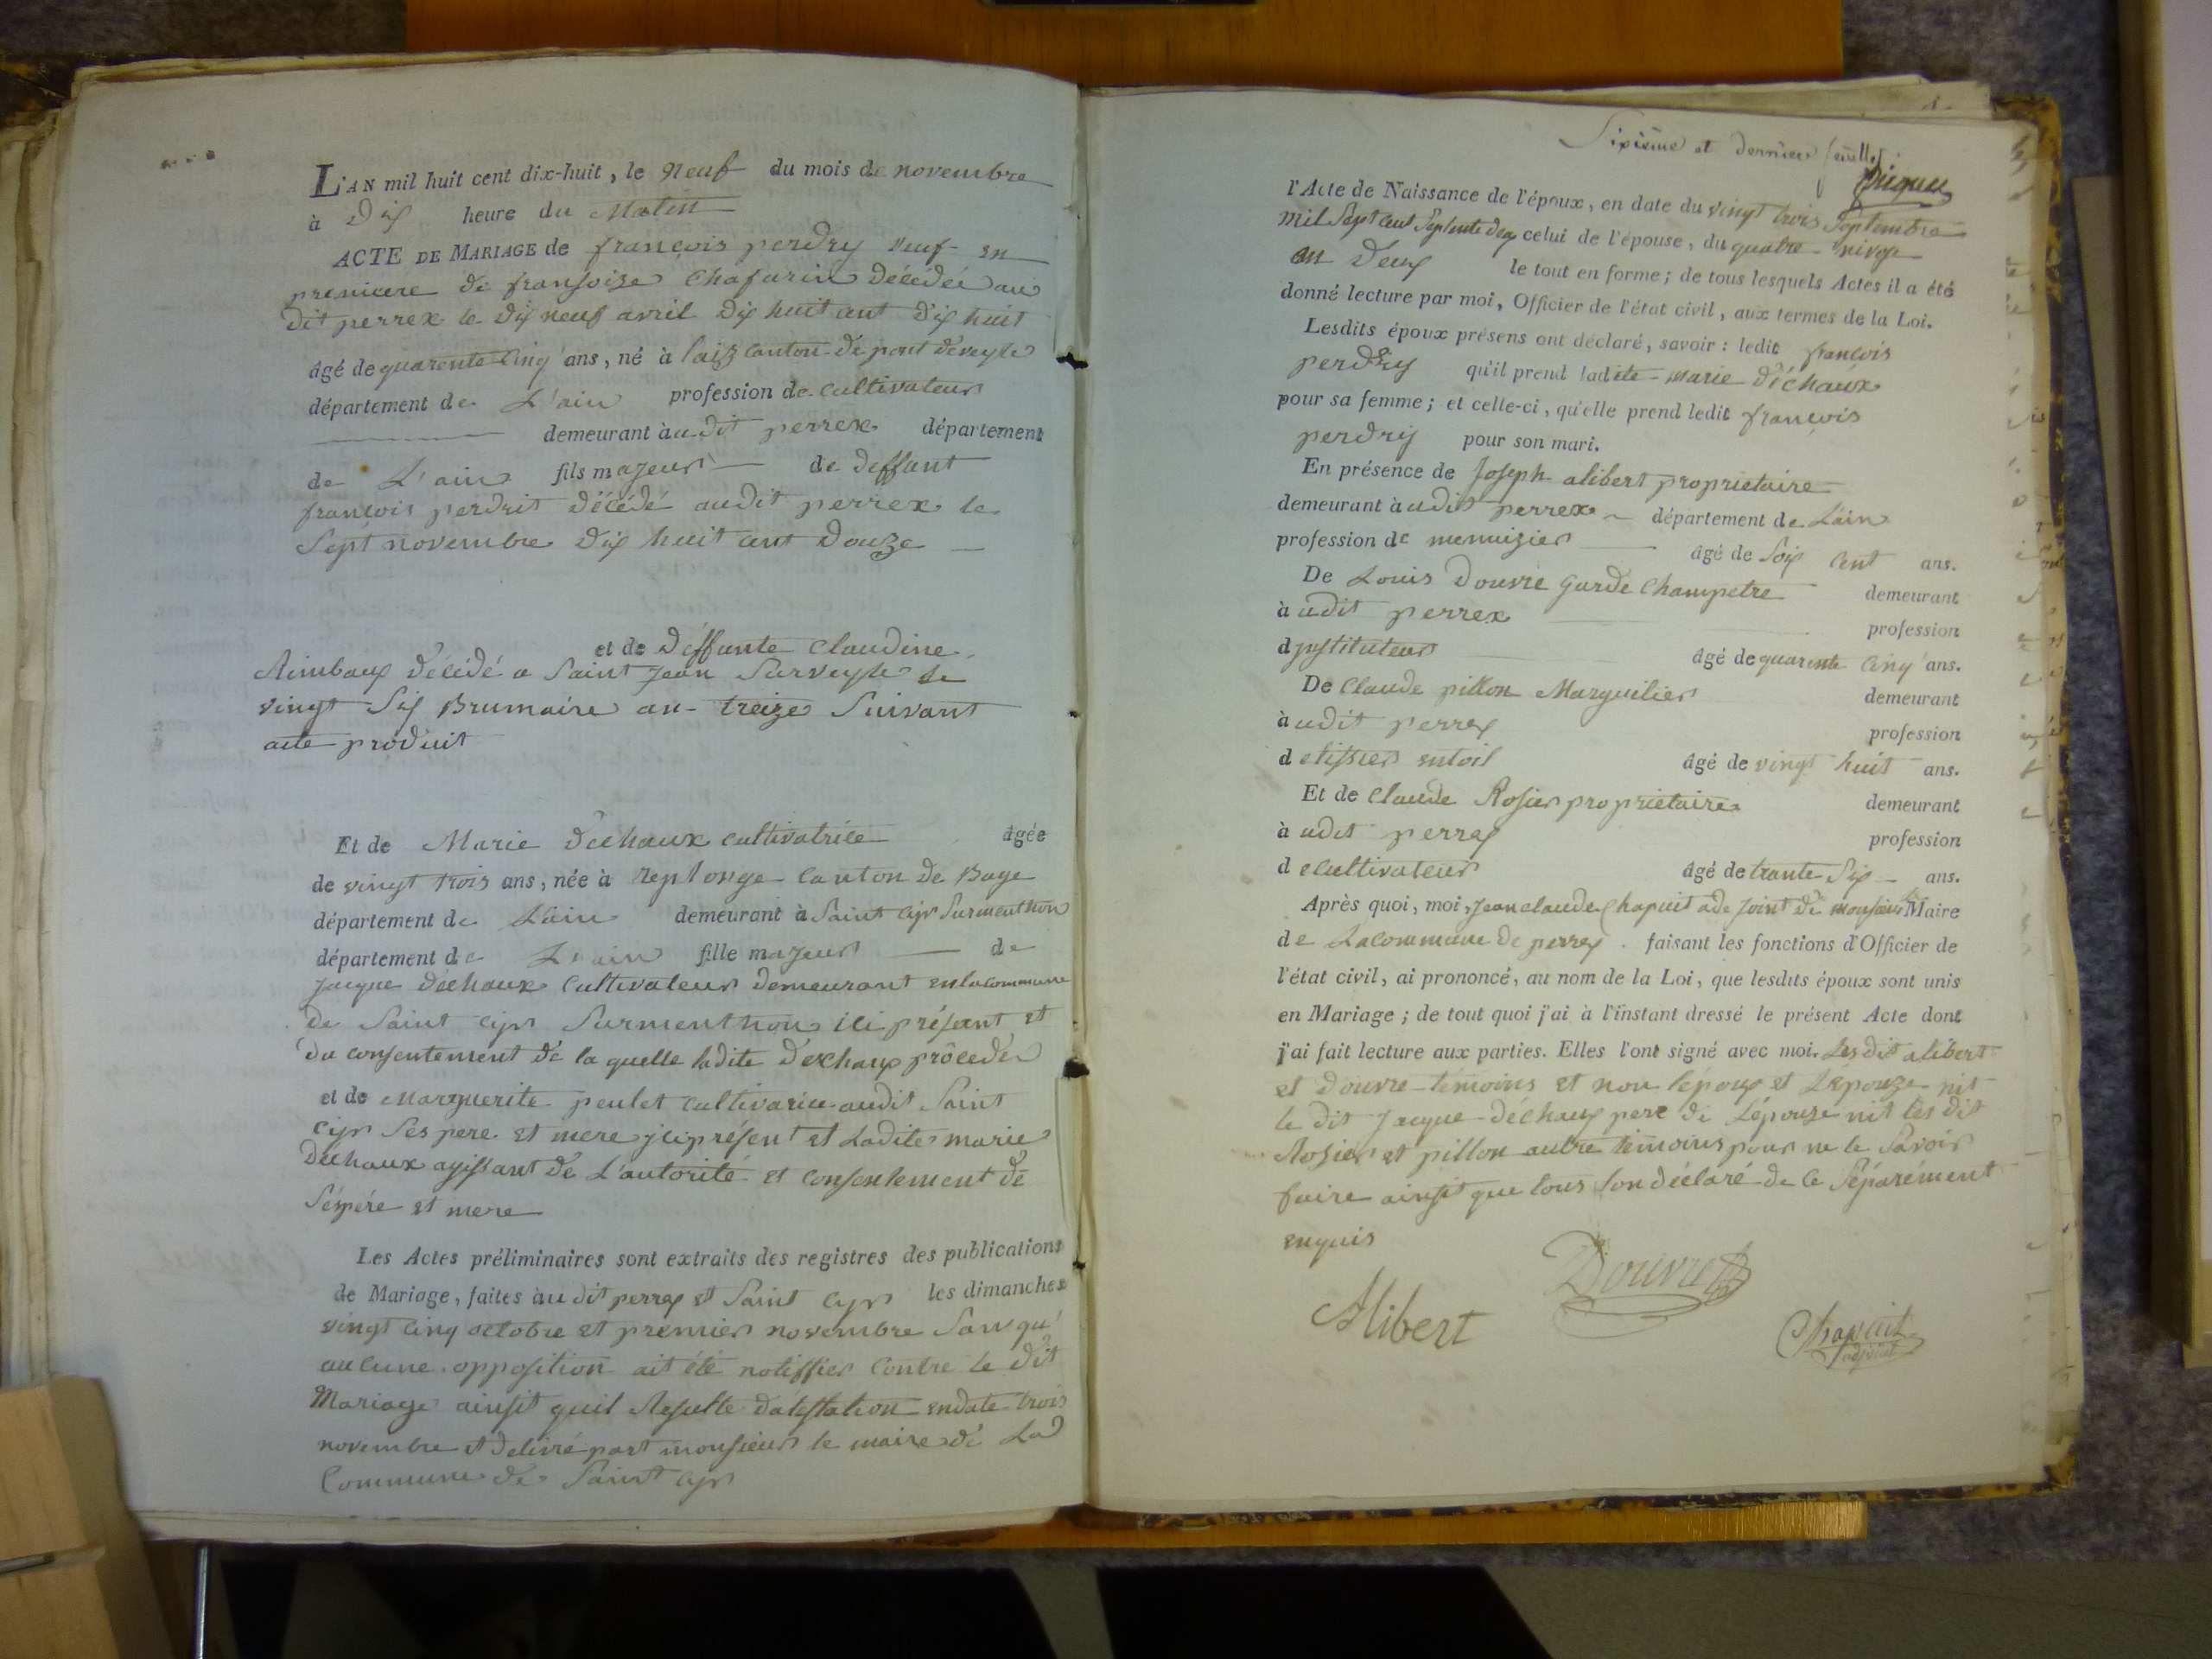 L'AN mil huit cent dix-huit, le neuf du mois de novembre
à Dix heure du Matin
ACTE DE MARIAGE de françois perdry veuf en
premiere de fransoise Chafurin décédée au
dit perrex le dix neuf avril dix huit cent dix huit
âgé de quarente cinq ans, né à laiz canton de pont deveyle
département de L'ain profession de cultivateur
demeurant à audit perrex département
de L'ain fils majeur de deffunt
françois perdrit décédé audit perrex le
sept novembre dix huit cent douze
et de déffunte Claudine
Rimbaux décédé a Saint Jean Surveyle le
vingt Six Brumaire an treize Suivant
acte produit
Et de Marie déchaux cultivatrice âgée
de vingt trois ans, née à replonge canton de Bage
département de L'ain demeurant à Saint Cyr Surmenthon
département de L'ain fille majeur de
Jacque déchaux Cultivateur demeurant en la commune
de Saint Cyr Surmenthon ici présent et
du consentement de la quelle ladite dechaux procéder
et de Marguerite peulet cultivarice audit Saint
Cyr Ses pere et mere ici présent et Ladite marie
Dechaux agissant de L'autorité et consentement de
Sespére et mere
Les Actes préliminaires sont extraits des registres des publications
de Mariage, faites àu dit perrex et Saint Cyr les dimanches
vingt cinq octobre et premier novembre San qu'
aucune opposition ait été notiffier Contre le dit
Mariage ainsit quil Resulte datestation en date trois
novembre et delivré part monsieur le maire de La
Commune de Saint Cyr
Sixième et dernier feuillet
l'Acte de Naissance de l'époux, en date du vingt trois Septembre
mil Sept cent Septente deux celui de l'épouse, du quatre nivos
an Deux le tout en forme; de tous lesquels Actes il a été
donné lecture par moi, Officier de l'état civil, aux termes de la Loi.
Lesdits époux présens ont déclaré, savoir: ledit françois
perdry qu'il prend ladite marie déchaux
pour sa femme; et celle-ci, qu'elle prend ledit françois
perdry pour son mari.
En présence de Joseph alibert propriétaire
demeurant àudit perrex département de L'ain
profession de menuizier âgé de Soix cent ans.
De Louis Douvre garde Champetre demeurant
àudit perrex profession
dinstituteur âgé de quarente cinq ans.
De Claude pillon Marguilier demeurant
àudit perrex profession
de tissier entoil âgé de vingt huit ans.
Et de Claude Rosier propriétaire demeurant
àudit perrex profession
de cultivateur âgé de trante Six ans.
Après quoi, moi, Jean claude Chapuit adejoint de monsieur le Maire
de La commune de perrex faisant les fonctions d'Officier de
l'état civil, ai prononcé, au nom de la Loi, que lesdits époux sont unis
en Mariage; de tout quoi j'ai à l'instant dressé le présent Acte dont
j'ai fait lecture aux parties. Elles l'ont signé avec moi. Les dit alibert
et douvre témoins et non lépoux et Lépouze nit
le dit Jacque déchaux pere de Lépouze nit les dit
Rosier et pillon autre témoins pour ne le Savoir
faire ainsit que tous lon déclaré de ce Séparément
enquis
Alibert
Douvre
Chapuit
adjoint